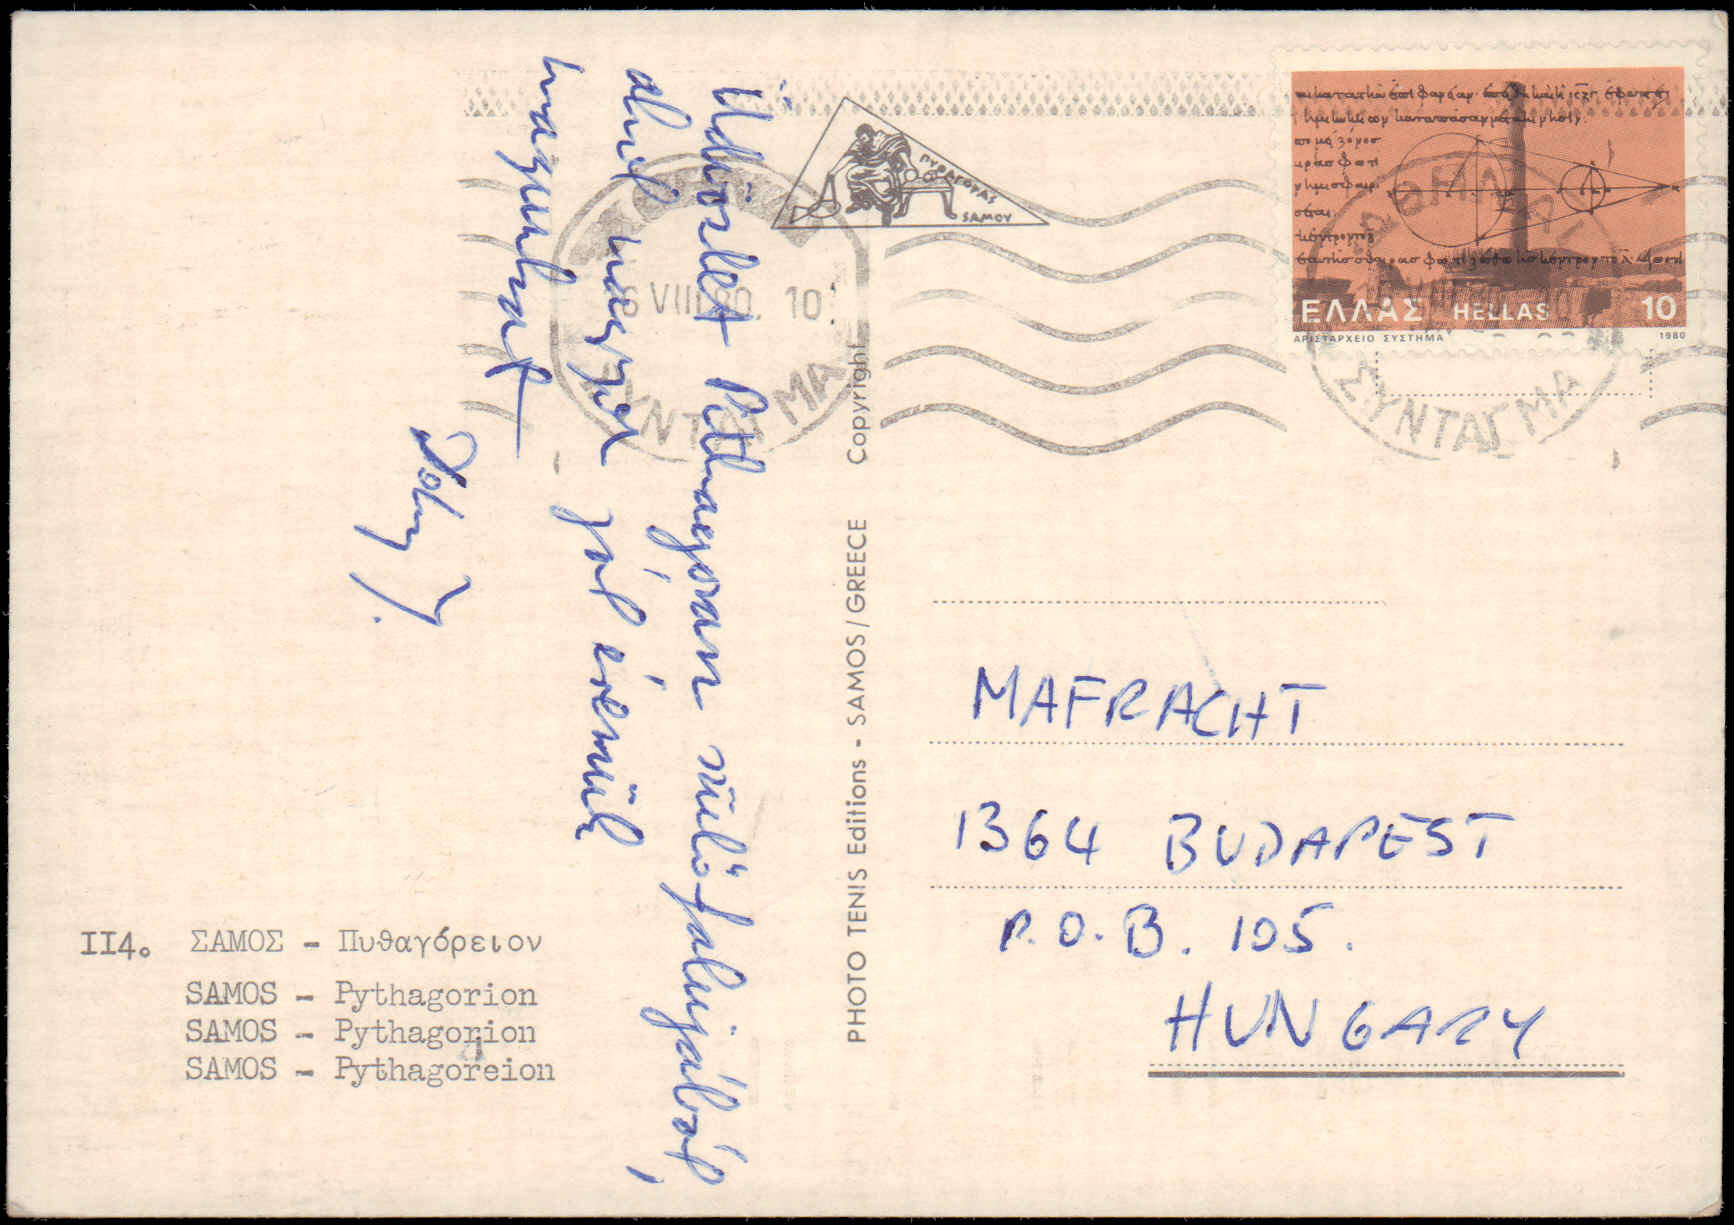 Üdvözlet Pithagorasz szülőfalujából,
ahol nagyon jól érezzük
magunkat
ΠΥΘΑΓΟΡΑΣ
ΣΑΜΟΥ
VIII 80. 10
ΣΥΝΤΑΓΜΑ
ΑΘΗΝΑΙ
ΣΥΝΤΑΓΜΑ
ΕΛΛΑΣ HELLAS 10
ΑΡΙΣΤΑΡΧΕΙΟ ΣΥΣΤΗΜΑ 1980
PHOTO TENIS Editions - SAMOS/GREECE Copyright
MAFRACHT
1364 BUDAPEST
P.O.B. 105.
HUNGARY
II4. ΣΑΜΟΣ - Πυθαγόρειον
SAMOS - Pythagorion
SAMOS - Pythagorion
SAMOS - Pythagoreion